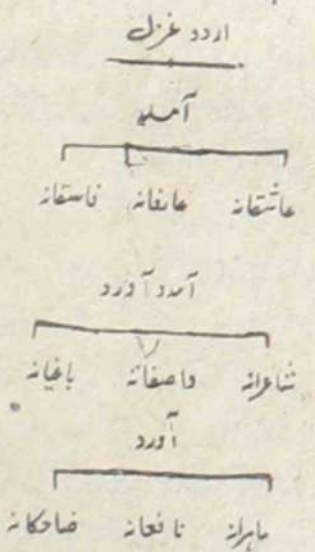 اردو غزل
آمد
عاشقانہ عارفانہ فاسقانہ
آمد و آورد
شاعرانہ واصفانہ باغیانہ
آورد
ماہرانہ نافعانہ ضاحکانہ